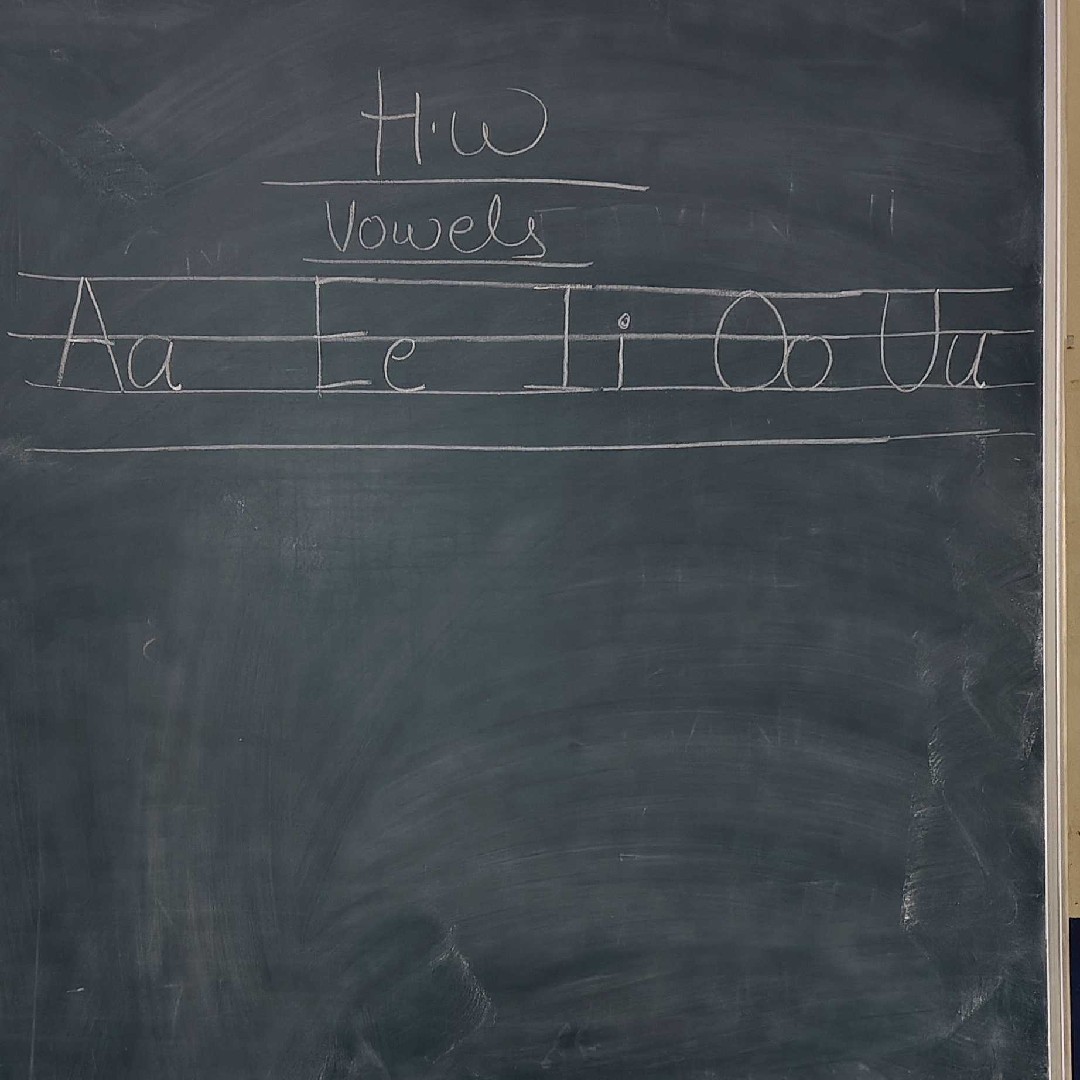 H.W
Vowels
Aa Ee Ii Oo Uu